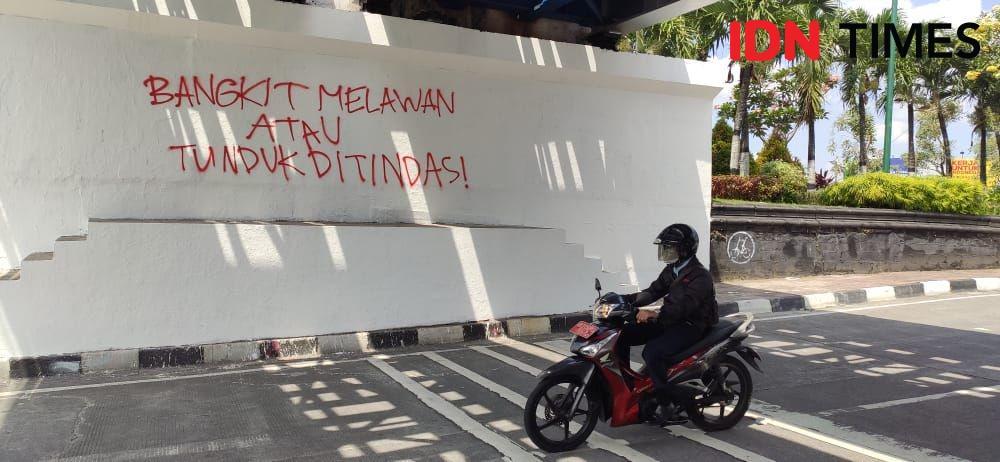 IDN TIMES
BANGKIT MELAWAN
ATAU
TUNDUK DITINDAS!
KERJA
UNTUK